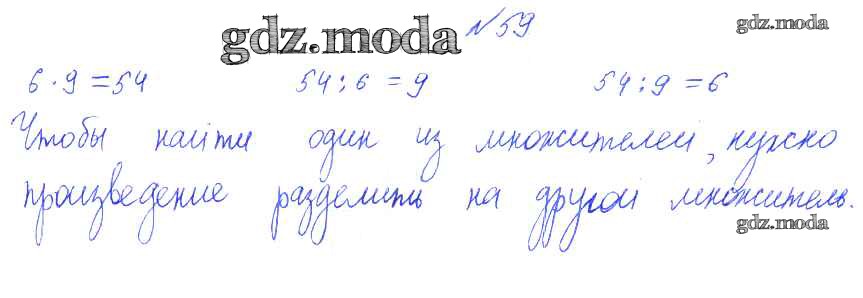 gdz.moda №59 gdz.moda
6 · 9 = 54 54 : 6 = 9 54 : 9 = 6
Чтобы найти один из множителей, нужно
произведение разделить на другой множитель.
gdz.moda